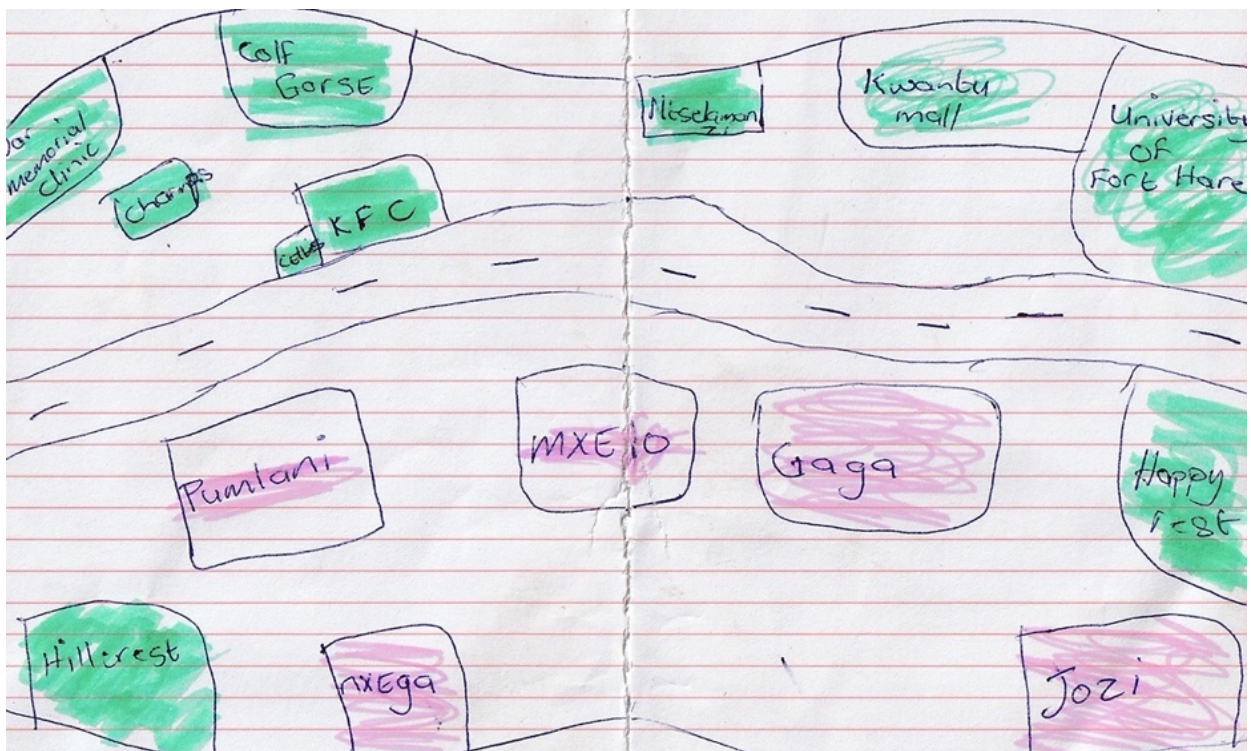 Golf
Gorse
Memorial
Clinic
Champs
KFC
Kwantu
mall
University
OF
Fort Hare
Pumlani
MXElo
Gaga
Happy
rest
Hillcrest
nxEga
Jozi